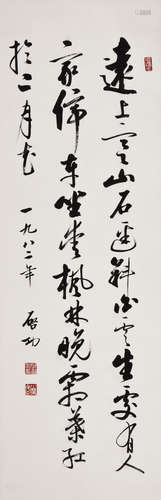 遠上寒山石逕斜白雲生處有人
家停車坐愛楓林晚霜葉紅
於二月花 一九八二年 啓功